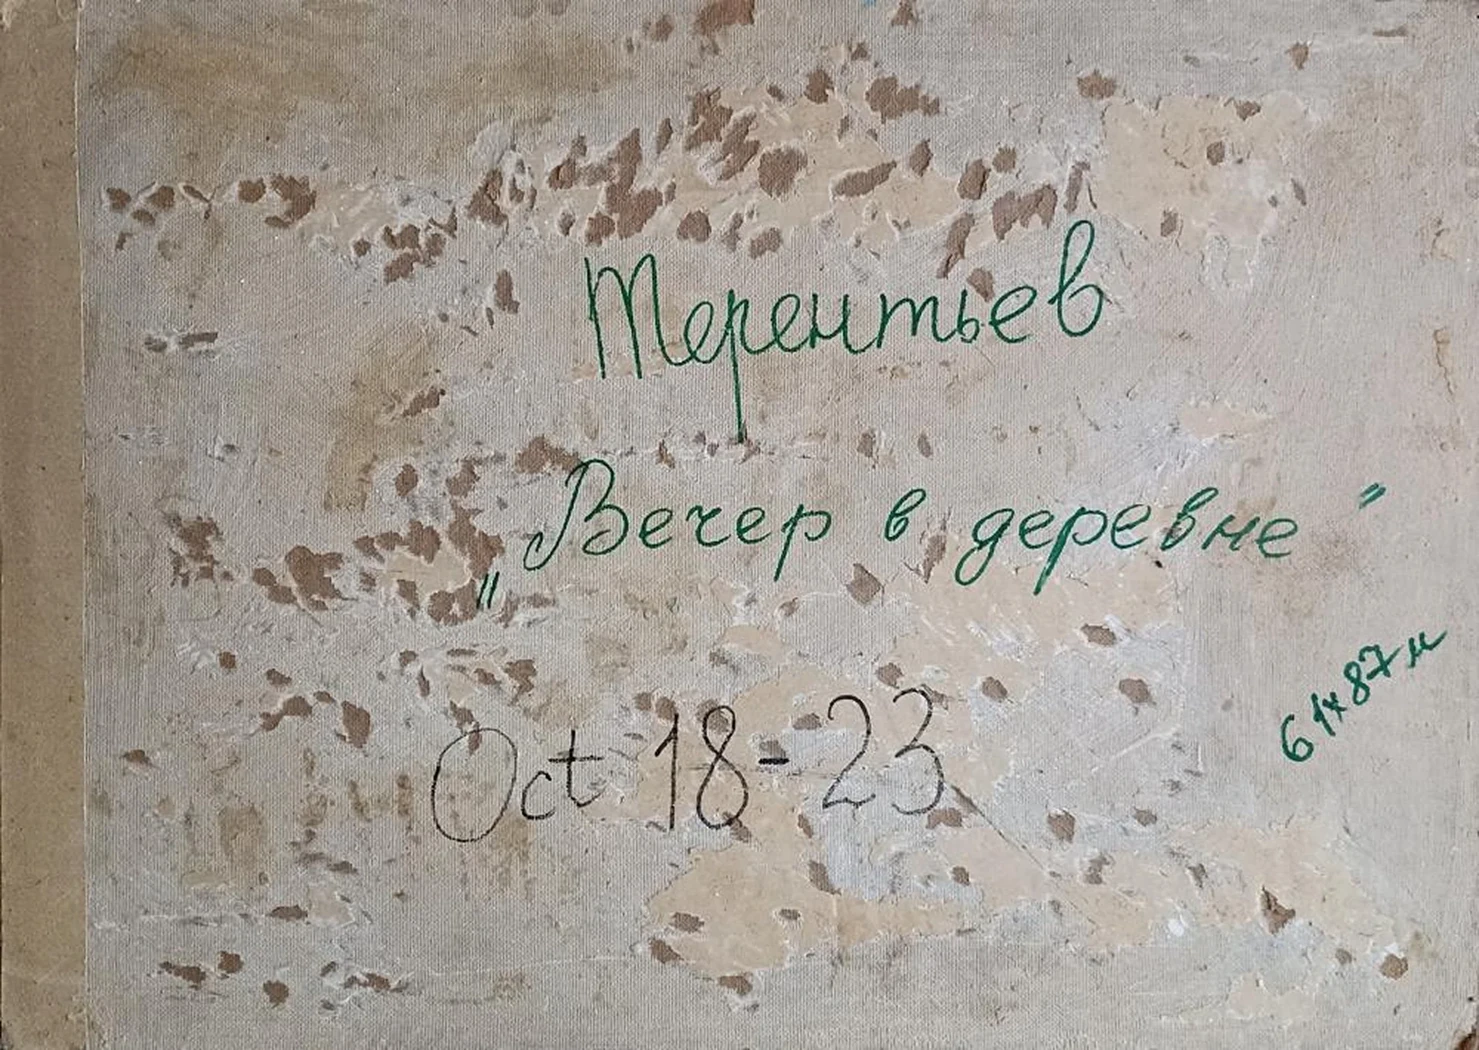 Терентьев
„Вечер в деревне"
61х87 м
Oct 18-23